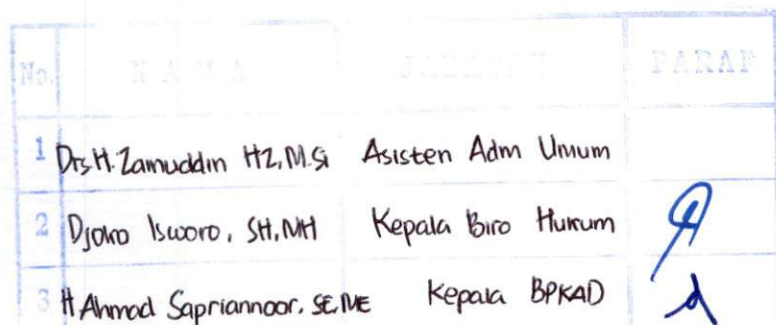 No. N A M A JABATAN PARAF
1 Drs H. Zainuddin HZ, M.Si Asisten Adm Umum
2 Djoko Isworo, SH, MH Kepala Biro Hukum
3 H Ahmad Sapriannoor, SE, ME Kepala BPKAD